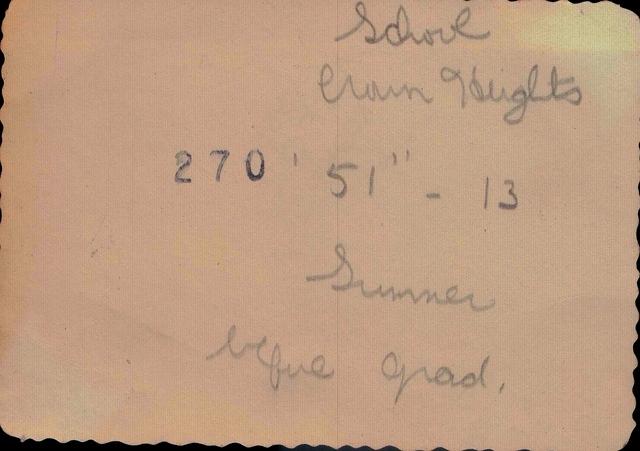 School
Crown Heights
270' 51" - 13
Summer
before grad.